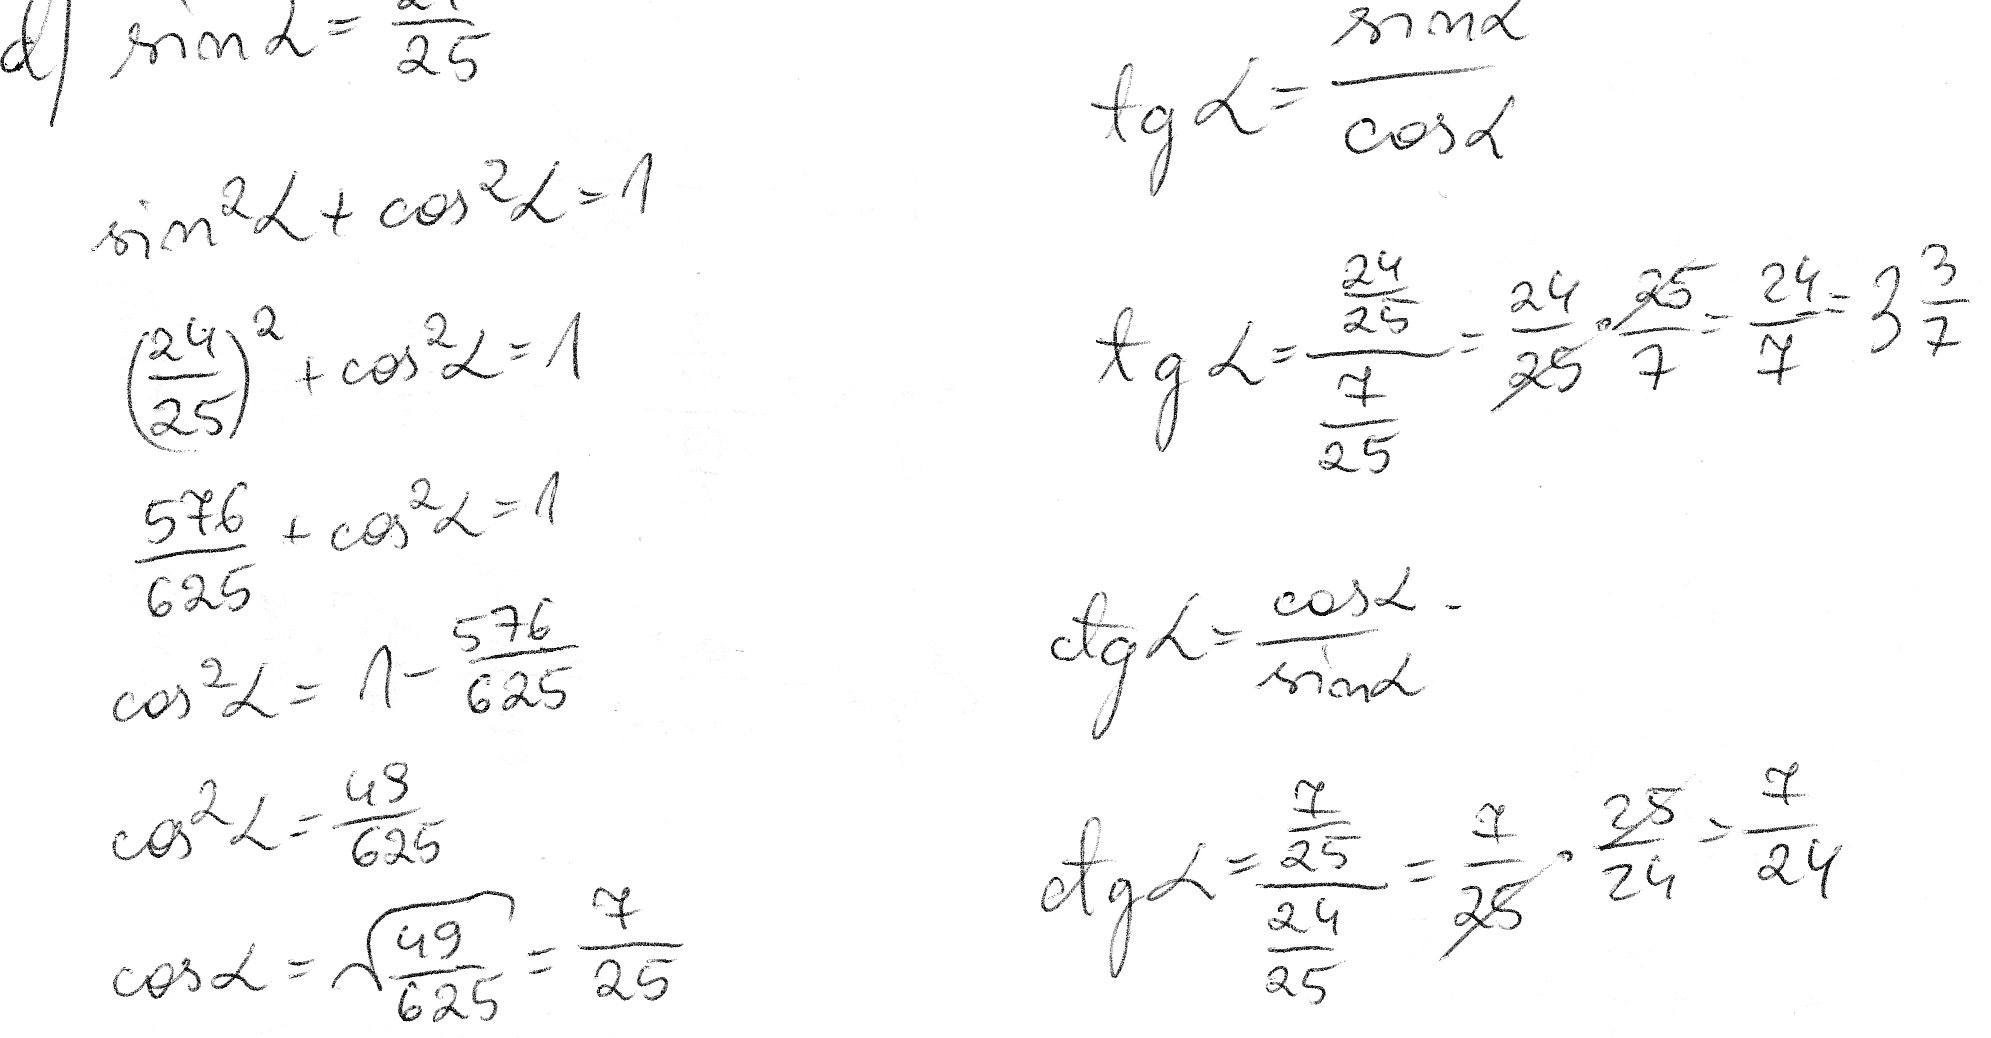 d) sin α = 24/25
sin²α + cos²α = 1
(24/25)² + cos²α = 1
576/625 + cos²α = 1
cos²α = 1 - 576/625
cos²α = 49/625
cos α = √(49/625) = 7/25
tg α = sin α / cos α
tg α = (24/25)/(7/25) = 24/25 · 25/7 = 24/7 = 3 3/7
ctg α = cos α / sin α
ctg α = (7/25)/(24/25) = 7/25 · 25/24 = 7/24